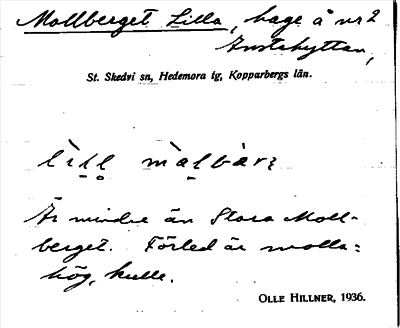 Mollberget Lilla, hage å nr 2
Anstahyttan,
St. Skedvi sn, Hedemora tg, Kopparbergs län.
Är mindre än Stora Moll-
berget. Förled är molla =
hög, kulle.
OLLE HILLNER, 1936.